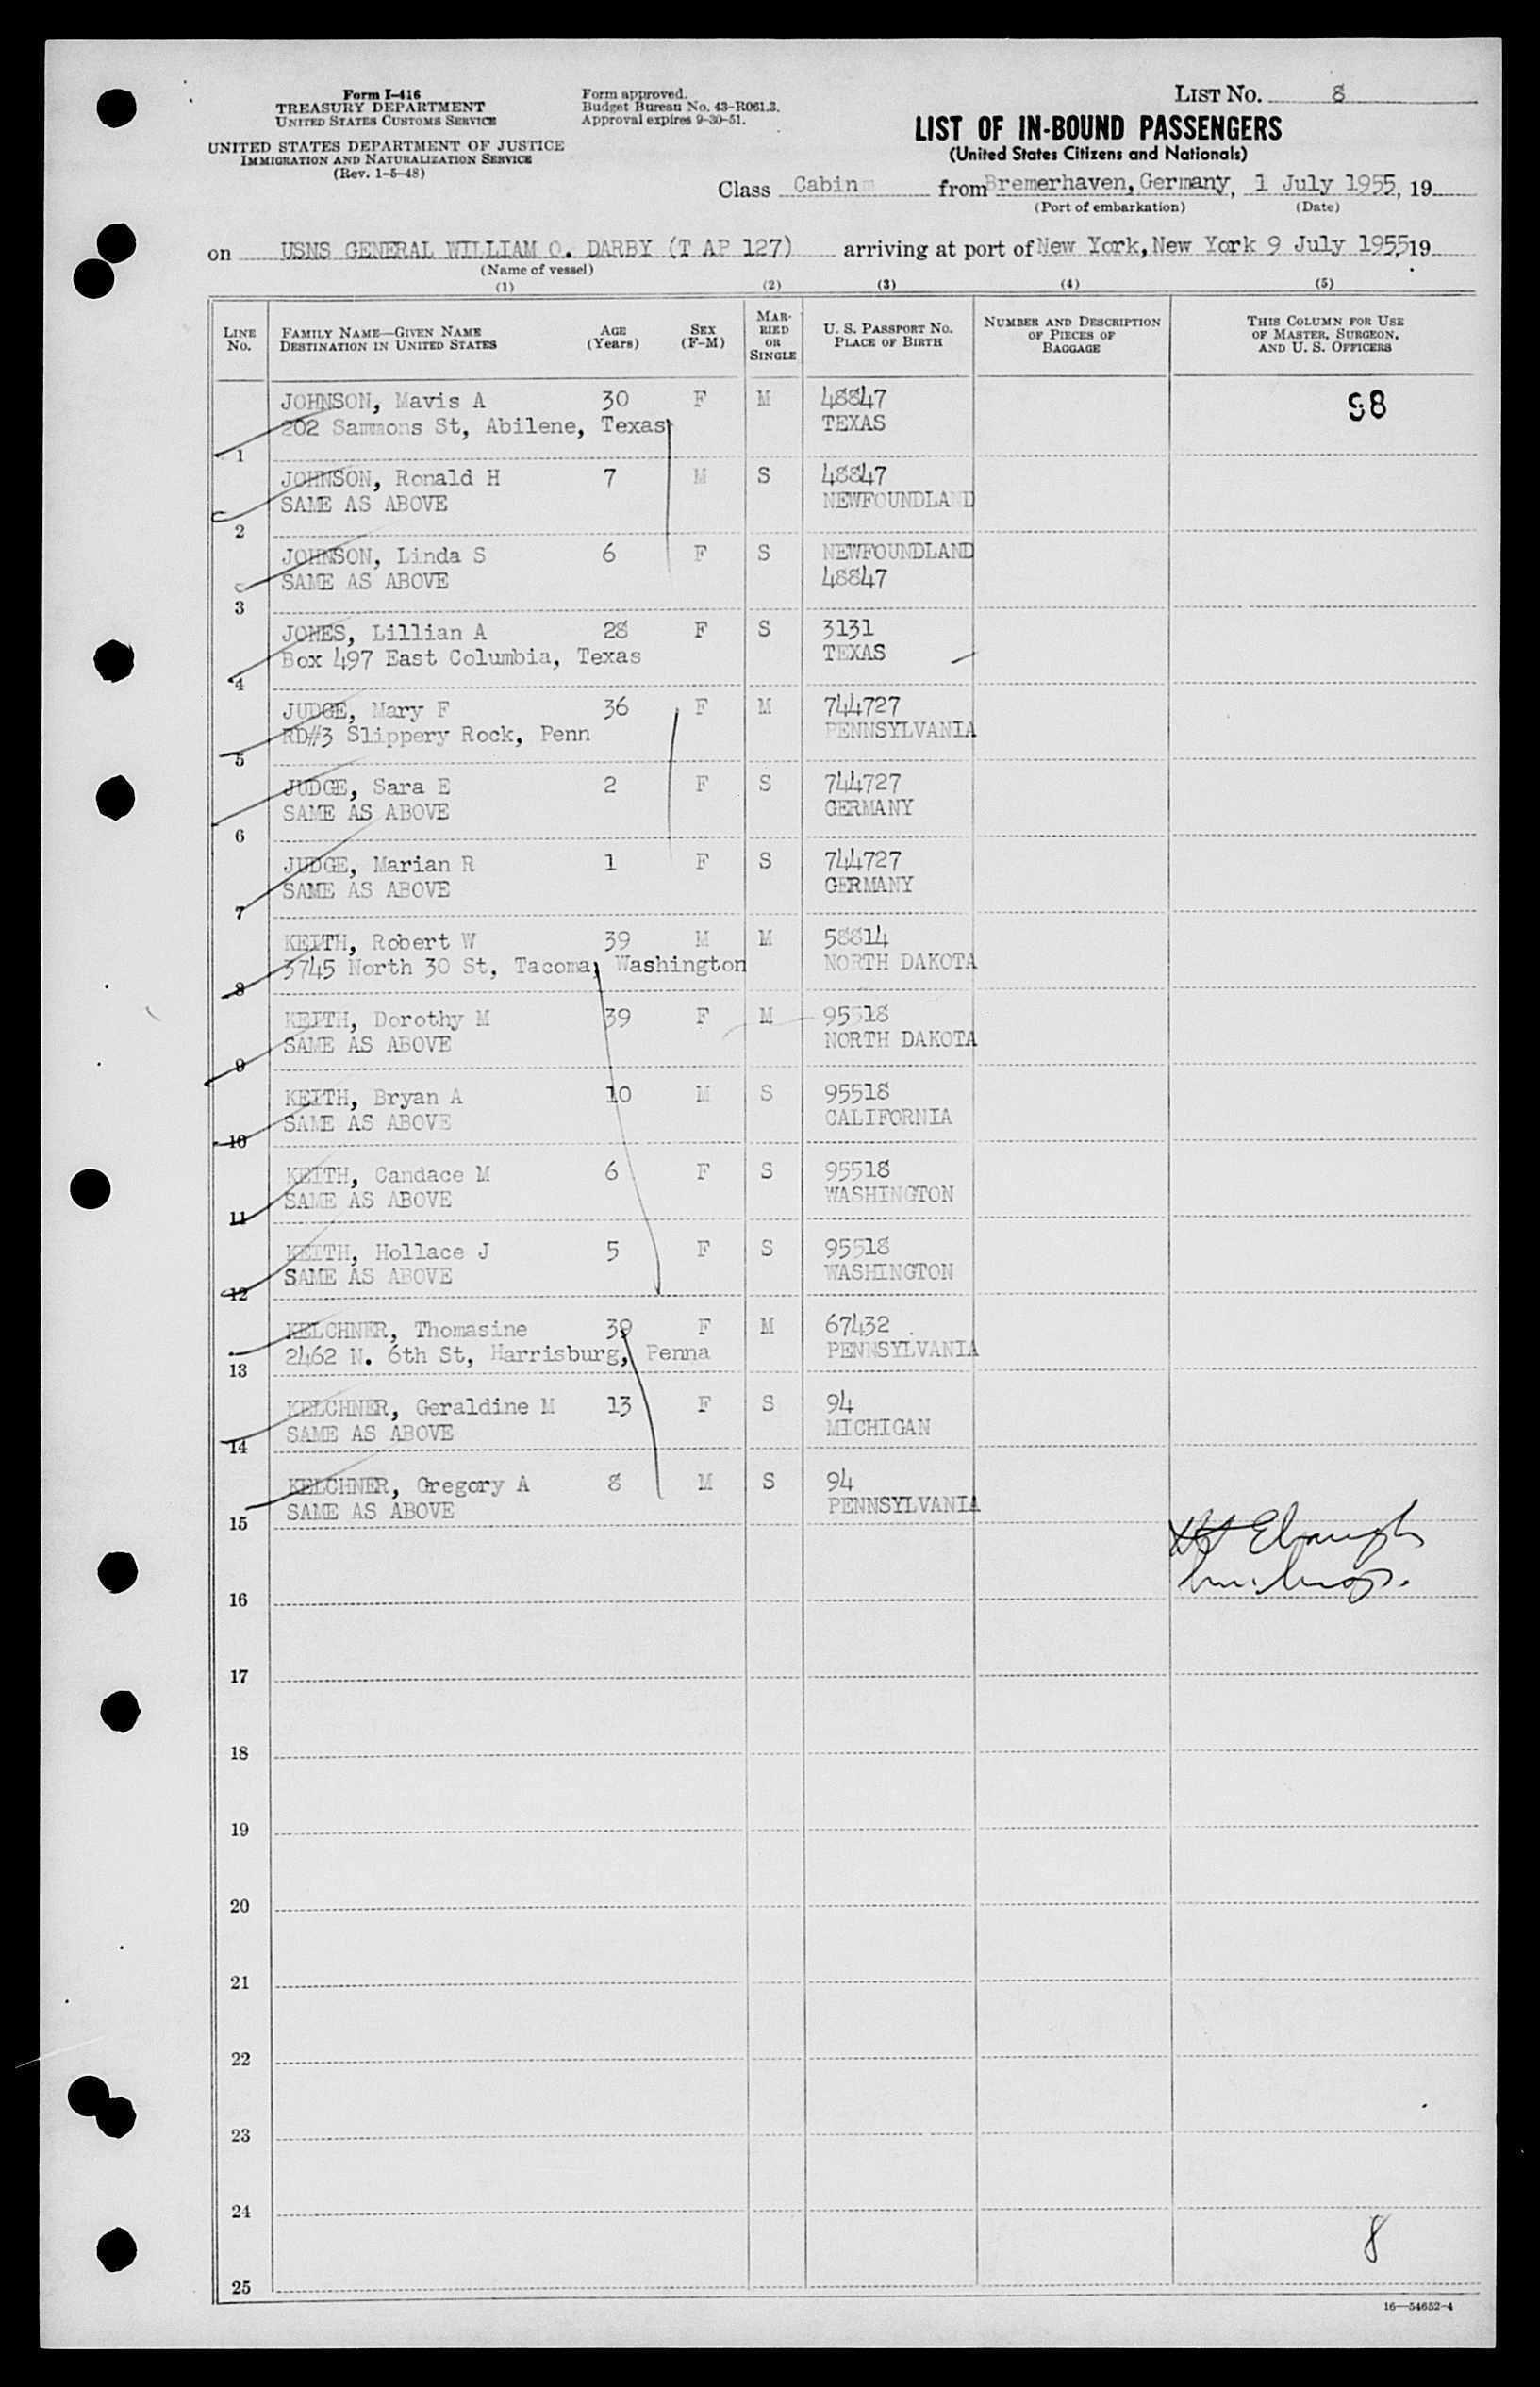 Form I-416
TREASURY DEPARTMENT
UNITED STATES CUSTOMS SERVICE
UNITED STATES DEPARTMENT OF JUSTICE
IMMIGRATION AND NATURALIZATION SERVICE
(Rev. 1-5-48)
Form approved.
Budget Bureau No. 43-R061.3.
Approval expires 9-30-51.
LIST NO. 8
LIST OF IN-BOUND PASSENGERS
(United States Citizens and Nationals)
Class Cabin from Bremerhaven, Germany, 1 July 1955, 19
(Port of embarkation) (Date)
on USNS GENERAL WILLIAM O. DARBY (T AP 127) arriving at port of New York, New York 9 July 1955, 19
(Name of vessel)
(1) (2) (3) (4) (5)
LINE NO. FAMILY NAME—GIVEN NAME DESTINATION IN UNITED STATES AGE (Years) SEX (F-M) MARRIED OR SINGLE U. S. PASSPORT NO. PLACE OF BIRTH NUMBER AND DESCRIPTION OF PIECES OF BAGGAGE THIS COLUMN FOR USE OF MASTER, SURGEON, AND U. S. OFFICERS
JOHNSON, Mavis A 30 F M 48847 98
202 Sammons St, Abilene, Texas TEXAS
1
JOHNSON, Ronald H 7 M S 48847
SAME AS ABOVE NEWFOUNDLAND
2
JOHNSON, Linda S 6 F S NEWFOUNDLAND
SAME AS ABOVE 48847
3
JONES, Lillian A 28 F S 3131
Box 497 East Columbia, Texas TEXAS
4
JUDGE, Mary F 36 F M 744727
RD#3 Slippery Rock, Penn PENNSYLVANIA
5
JUDGE, Sara E 2 F S 744727
SAME AS ABOVE GERMANY
6
JUDGE, Marian R 1 F S 744727
SAME AS ABOVE GERMANY
7
KEITH, Robert W 39 M M 58814
3745 North 30 St, Tacoma, Washington NORTH DAKOTA
8
KEITH, Dorothy M 39 F M 95518
SAME AS ABOVE NORTH DAKOTA
9
KEITH, Bryan A 10 M S 95518
SAME AS ABOVE CALIFORNIA
10
KEITH, Candace M 6 F S 95518
SAME AS ABOVE WASHINGTON
11
KEITH, Hollace J 5 F S 95518
SAME AS ABOVE WASHINGTON
12
KELCHNER, Thomasine 39 F M 67432
2462 N. 6th St, Harrisburg, Penna PENNSYLVANIA
13
KELCHNER, Geraldine M 13 F S 94
SAME AS ABOVE MICHIGAN
14
KELCHNER, Gregory A 8 M S 94
SAME AS ABOVE PENNSYLVANIA
15
Ebaugh
16
17
18
19
20
21
22
23
24
8
25
16—54652-4